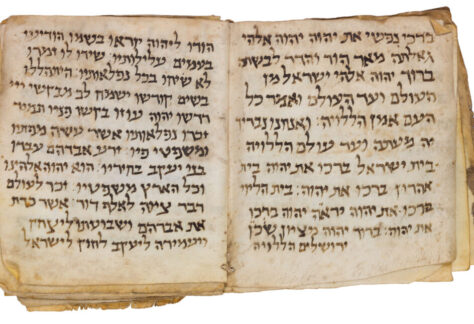 ברכי נפשי את יהוה יהוה אלהי
גדלתה מאד הוד והדר לבשת
ברוך יהוה אלהי ישראל מן
העולם ועד העולם ואמר כל
העם אמן הללויה: ואנחנו נברך
יה מעתה ועד עולם הללויה
בית ישראל ברכו את יהוה בית
אהרון ברכו את יהוה: בית הלוי
ברכו את יהוה יראי יהוה ברכו
את יהוה: ברוך יהוה מציון שכן
ירושלים הללויה
הודו ליהוה קראו בשמו הודיעו
בעמים עלילותיו: שירו לו זמרו
לו שיחו בכל נפלאותיו: התהללו
בשם קודשו ישמח לב מבקשי ייי
דרשו יהוה עוזו בקשו פניו תמיד
זכרו נפלאותיו אשר עשה מפתיו
ומשפטי פיו: זרע אברהם עבדו
בני יעקב בחיריו: הוא יהוה אלהינו
בכל הארץ משפטיו: זכר לעולם
דבר ציוה לאלף דור: אשר כרת
את אברהם ושבועתו ליצחק
ויעמידה ליעקב לחוק לישראל